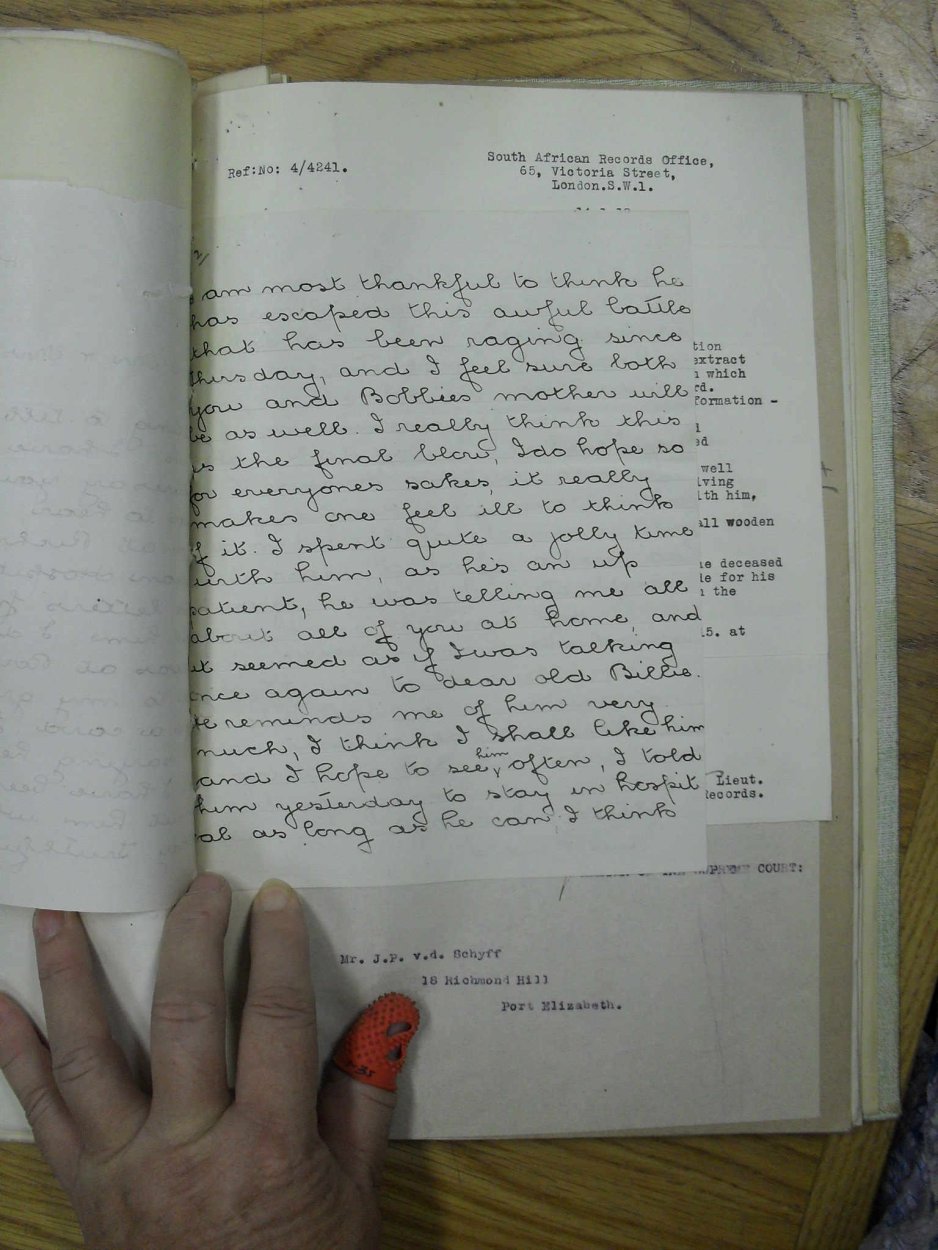 Ref:No: 4/4241.
South African Records Office,
65, Victoria Street,
London.S.W.1.
2/
am most thankful to think he
has escaped this awful battle
that has been raging since
thursday, and I feel sure both
you and Bobbies mother will
be as well. I really think this
is the final blow, I do hope so
for everyones sakes, it really
makes one feel ill to think
of it. I spent quite a jolly time
with him, as he's an up
patient, he was telling me all
about all of you at home, and
it seemed as if I was talking
once again to dear old Billie.
He reminds me of him very
much, I think I shall like him
and I hope to see him often, I told
him yesterday to stay in hospit
al as long as he can I think
tion
extract
which
rd.
formation -
ed
well
iving
ith him,
all wooden
deceased
le for his
the
15. at
Lieut.
Records.
SUPREME COURT:
Mr. J.P. v.d. Schyff
18 Richmond Hill
Port Elizabeth.